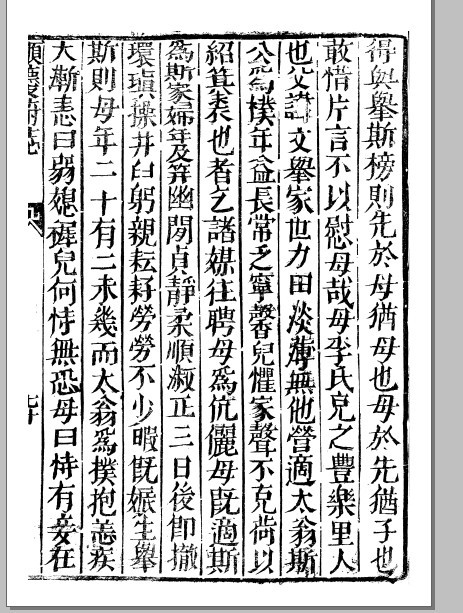 得與舉斯榜則先於母猶母也母於先猶子也
敢惜片言不以慰母哉母李氏兗之豐樂里人
也父諱文舉家世力田淡薄無他營適太翁斯
公爲樸年益長常乏寧馨兒懼家聲不克荷以
紹箕裘也者乞諸媒往聘母爲伉儷母旣適斯
爲斯家婦年及笄幽閒貞靜柔順淑正三日後即撤
環瑱操井臼躬親耘耔勞勞不少暇旣娠生舉
斯則母年二十有二未幾而太翁爲撲抱恙疾
大漸恚曰弱媳褓兒何恃無恐母曰恃有妾在